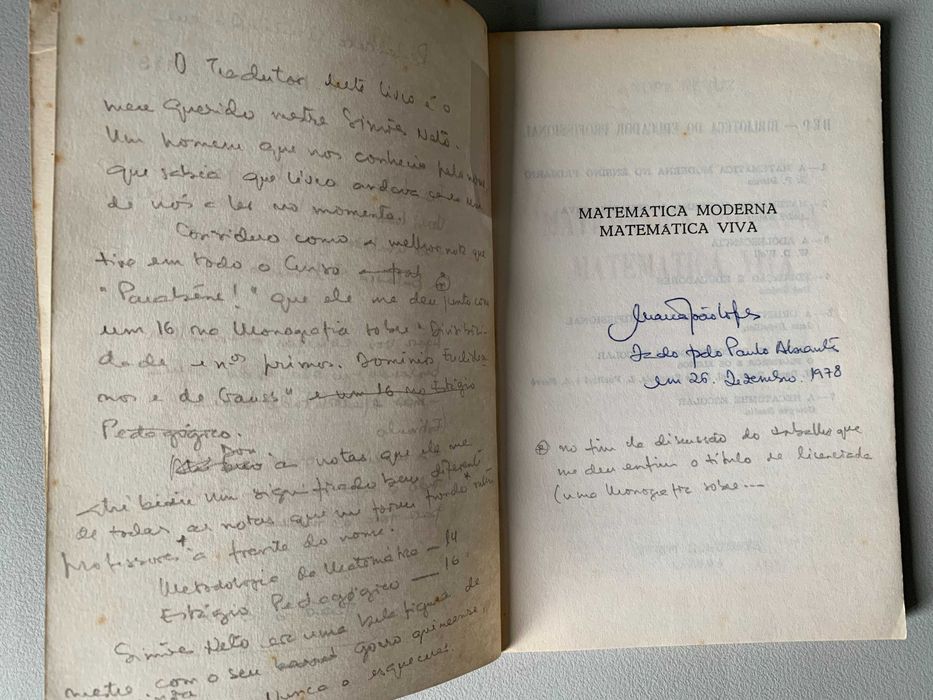 O Tradutor deste livro é o
meu querido mestre Simões Neto.
Um homem que nos conhecia pelo nome
que sabia que livro andava cada um
de nós a ler no momento.
Considero como a melhor nota que
tive em todo o Curso o
"Parabéns!" ⊛ que ele me deu junto com
um 16 na Monografia sobre "Divisibili-
dade e nos primos. Domínios Euclidea-
nos e de Gauss" e um 16 no Estágio
Pedagógico.
Dou
à notas que ele me
atribuiu um significado bem diferente
de todas as notas que me foram pondo
professores à frente do nome.
Metodologia da Matemática — 14
Estágio Pedagógico — 16
Simões Neto era uma bela figura de
mestre com o seu gorro
Nunca o esquecerei.
BEP — BIBLIOTECA DO EDUCADOR PROFISSIONAL
1 — A MATEMATICA MODERNA NO ENSINO PRIMARIO
MATEMATICA MODERNA
MATEMATICA VIVA
Maria João Lopes
Dado pelo Paulo Abrantes
em 26. Dezembro. 1978
⊛ no fim da discussão do trabalho que
me deu enfim o título de licenciada
(uma Monografia sobre ---